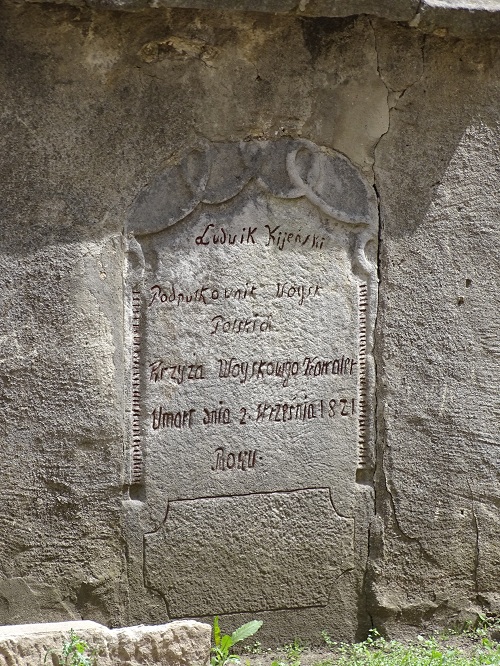 Ludwik Kijeński
Podpułkownik Woysk
Polskich
Krzyża Woyskowgo Kawaler
Umarł dnia 2 Września 1821
Roku.